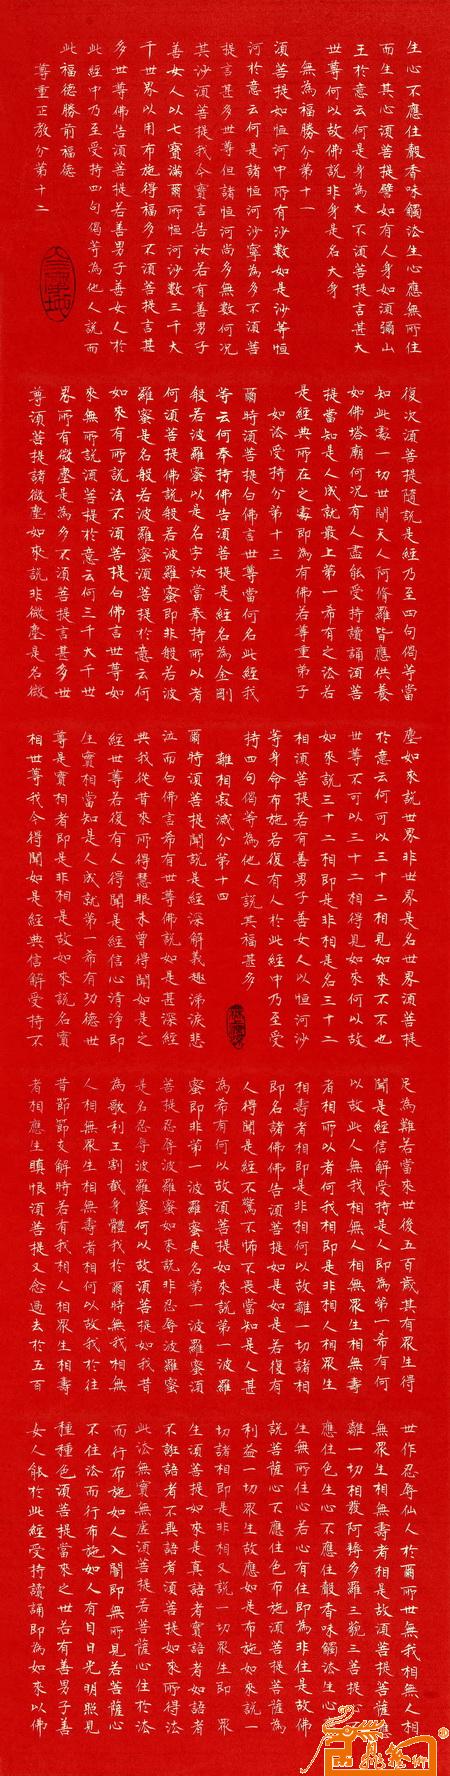 生心不應住聲香味觸法生心應無所住
而生其心須菩提譬如有人身如須彌山
王於意云何是身為大不須菩提言甚大
世尊何以故佛說非身是名大身
無為福勝分第十一
須菩提如恒河中所有沙數如是沙等恒
河於意云何是諸恒河沙寧為多不須菩
提言甚多世尊但諸恒河尚多無數何況
其沙須菩提我今實言告汝若有善男子
善女人以七寶滿爾所恒河沙數三千大
千世界以用布施得福多不須菩提言甚
多世尊佛告須菩提若善男子善女人於
此經中乃至受持四句偈等為他人說而
此福德勝前福德
尊重正教分第十二
復次須菩提隨說是經乃至四句偈等當
知此處一切世間天人阿修羅皆應供養
如佛塔廟何況有人盡能受持讀誦須菩
提當知是人成就最上第一希有之法若
是經典所在之處即為有佛若尊重弟子
如法受持分第十三
爾時須菩提白佛言世尊當何名此經我
等云何奉持佛告須菩提是經名為金剛
般若波羅蜜以是名字汝當奉持所以者
何須菩提佛說般若波羅蜜即非般若波
羅蜜是名般若波羅蜜須菩提於意云何
如來有所說法不須菩提白佛言世尊如
來無所說須菩提於意云何三千大千世
界所有微塵是為多不須菩提言甚多世
尊須菩提諸微塵如來說非微塵是名微
塵如來說世界非世界是名世界須菩提
於意云何可以三十二相見如來不不也
世尊不可以三十二相得見如來何以故
如來說三十二相即是非相是名三十二
相須菩提若有善男子善女人以恒河沙
等身命布施若復有人於此經中乃至受
持四句偈等為他人說其福甚多
離相寂滅分第十四
爾時須菩提聞說是經深解義趣涕淚悲
泣而白佛言希有世尊佛說如是甚深經
典我從昔來所得慧眼未曾得聞如是之
經世尊若復有人得聞是經信心清淨即
生實相當知是人成就第一希有功德世
尊是實相者即是非相是故如來說名實
相世尊我今得聞如是經典信解受持不
足為難若當來世後五百歲其有眾生得
聞是經信解受持是人即為第一希有何
以故此人無我相無人相無眾生相無壽
者相所以者何我相即是非相人相眾生
相壽者相即是非相何以故離一切諸相
即名諸佛佛告須菩提如是如是若復有
人得聞是經不驚不怖不畏當知是人甚
為希有何以故須菩提如來說第一波羅
蜜即非第一波羅蜜是名第一波羅蜜須
菩提忍辱波羅蜜如來說非忍辱波羅蜜
是名忍辱波羅蜜何以故須菩提如我昔
為歌利王割截身體我於爾時無我相無
人相無眾生相無壽者相何以故我於往
昔節節支解時若有我相人相眾生相壽
者相應生瞋恨須菩提又念過去於五百
世作忍辱仙人於爾所世無我相無人相
無眾生相無壽者相是故須菩提菩薩應
離一切相發阿耨多羅三藐三菩提心不
應住色生心不應住聲香味觸法生心應
生無所住心若心有住即為非住是故佛
說菩薩心不應住色布施須菩提菩薩為
利益一切眾生故應如是布施如來說一
切諸相即是非相又說一切眾生即非眾
生須菩提如來是真語者實語者如語者
不誑語者不異語者須菩提如來所得法
此法無實無虛須菩提若菩薩心住於法
而行布施如人入闇即無所見若菩薩心
不住法而行布施如人有目日光明照見
種種色須菩提當來之世若有善男子善
女人能於此經受持讀誦即為如來以佛